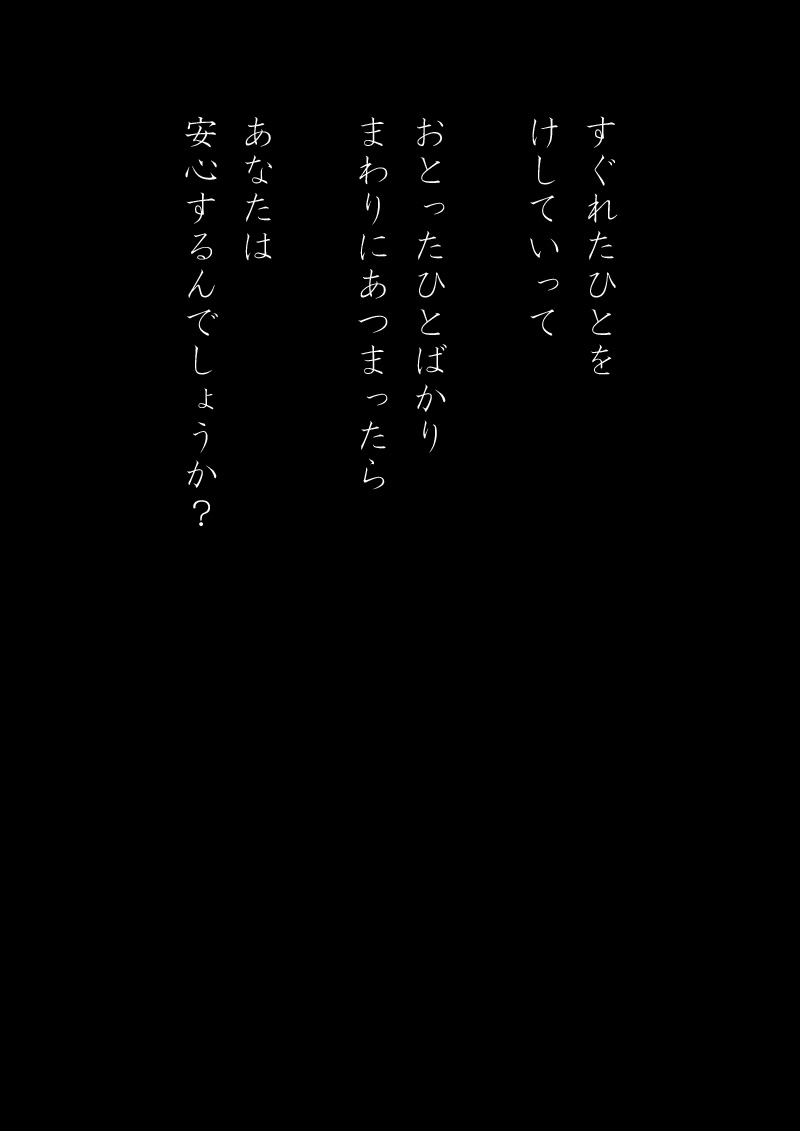 すぐれたひとを
けしていって
おとったひとばかり
まわりにあつまったら
あなたは
安心するんでしょうか？